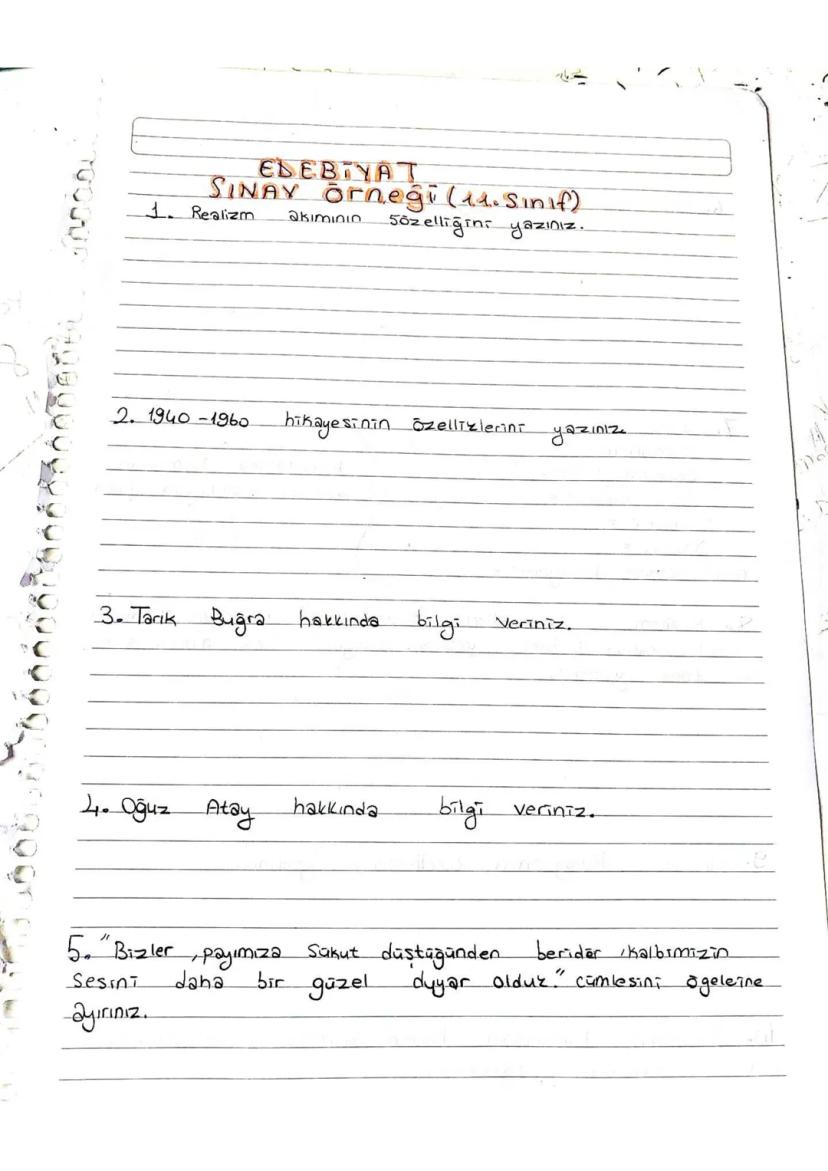 EDEBİYAT
SINAV Örneği (11. Sınıf)
1. Realizm akımının 5özelliğini yazınız.
2. 1940-1960 hikayesinin özelliklerini yazınız
3. Tarık Buğra hakkında bilgi veriniz.
4. Oğuz Atay hakkında bilgi veriniz.
5. "Bizler, payımıza sükut düştüğünden beridir, kalbimizin
sesini daha bir güzel duyar olduk." cümlesini ögeleine
ayırınız.